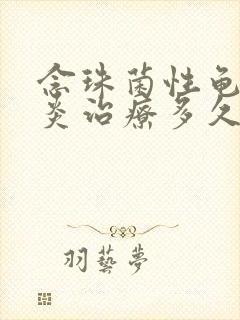 念珠菌性龟
炎治療多久
羽藝夢